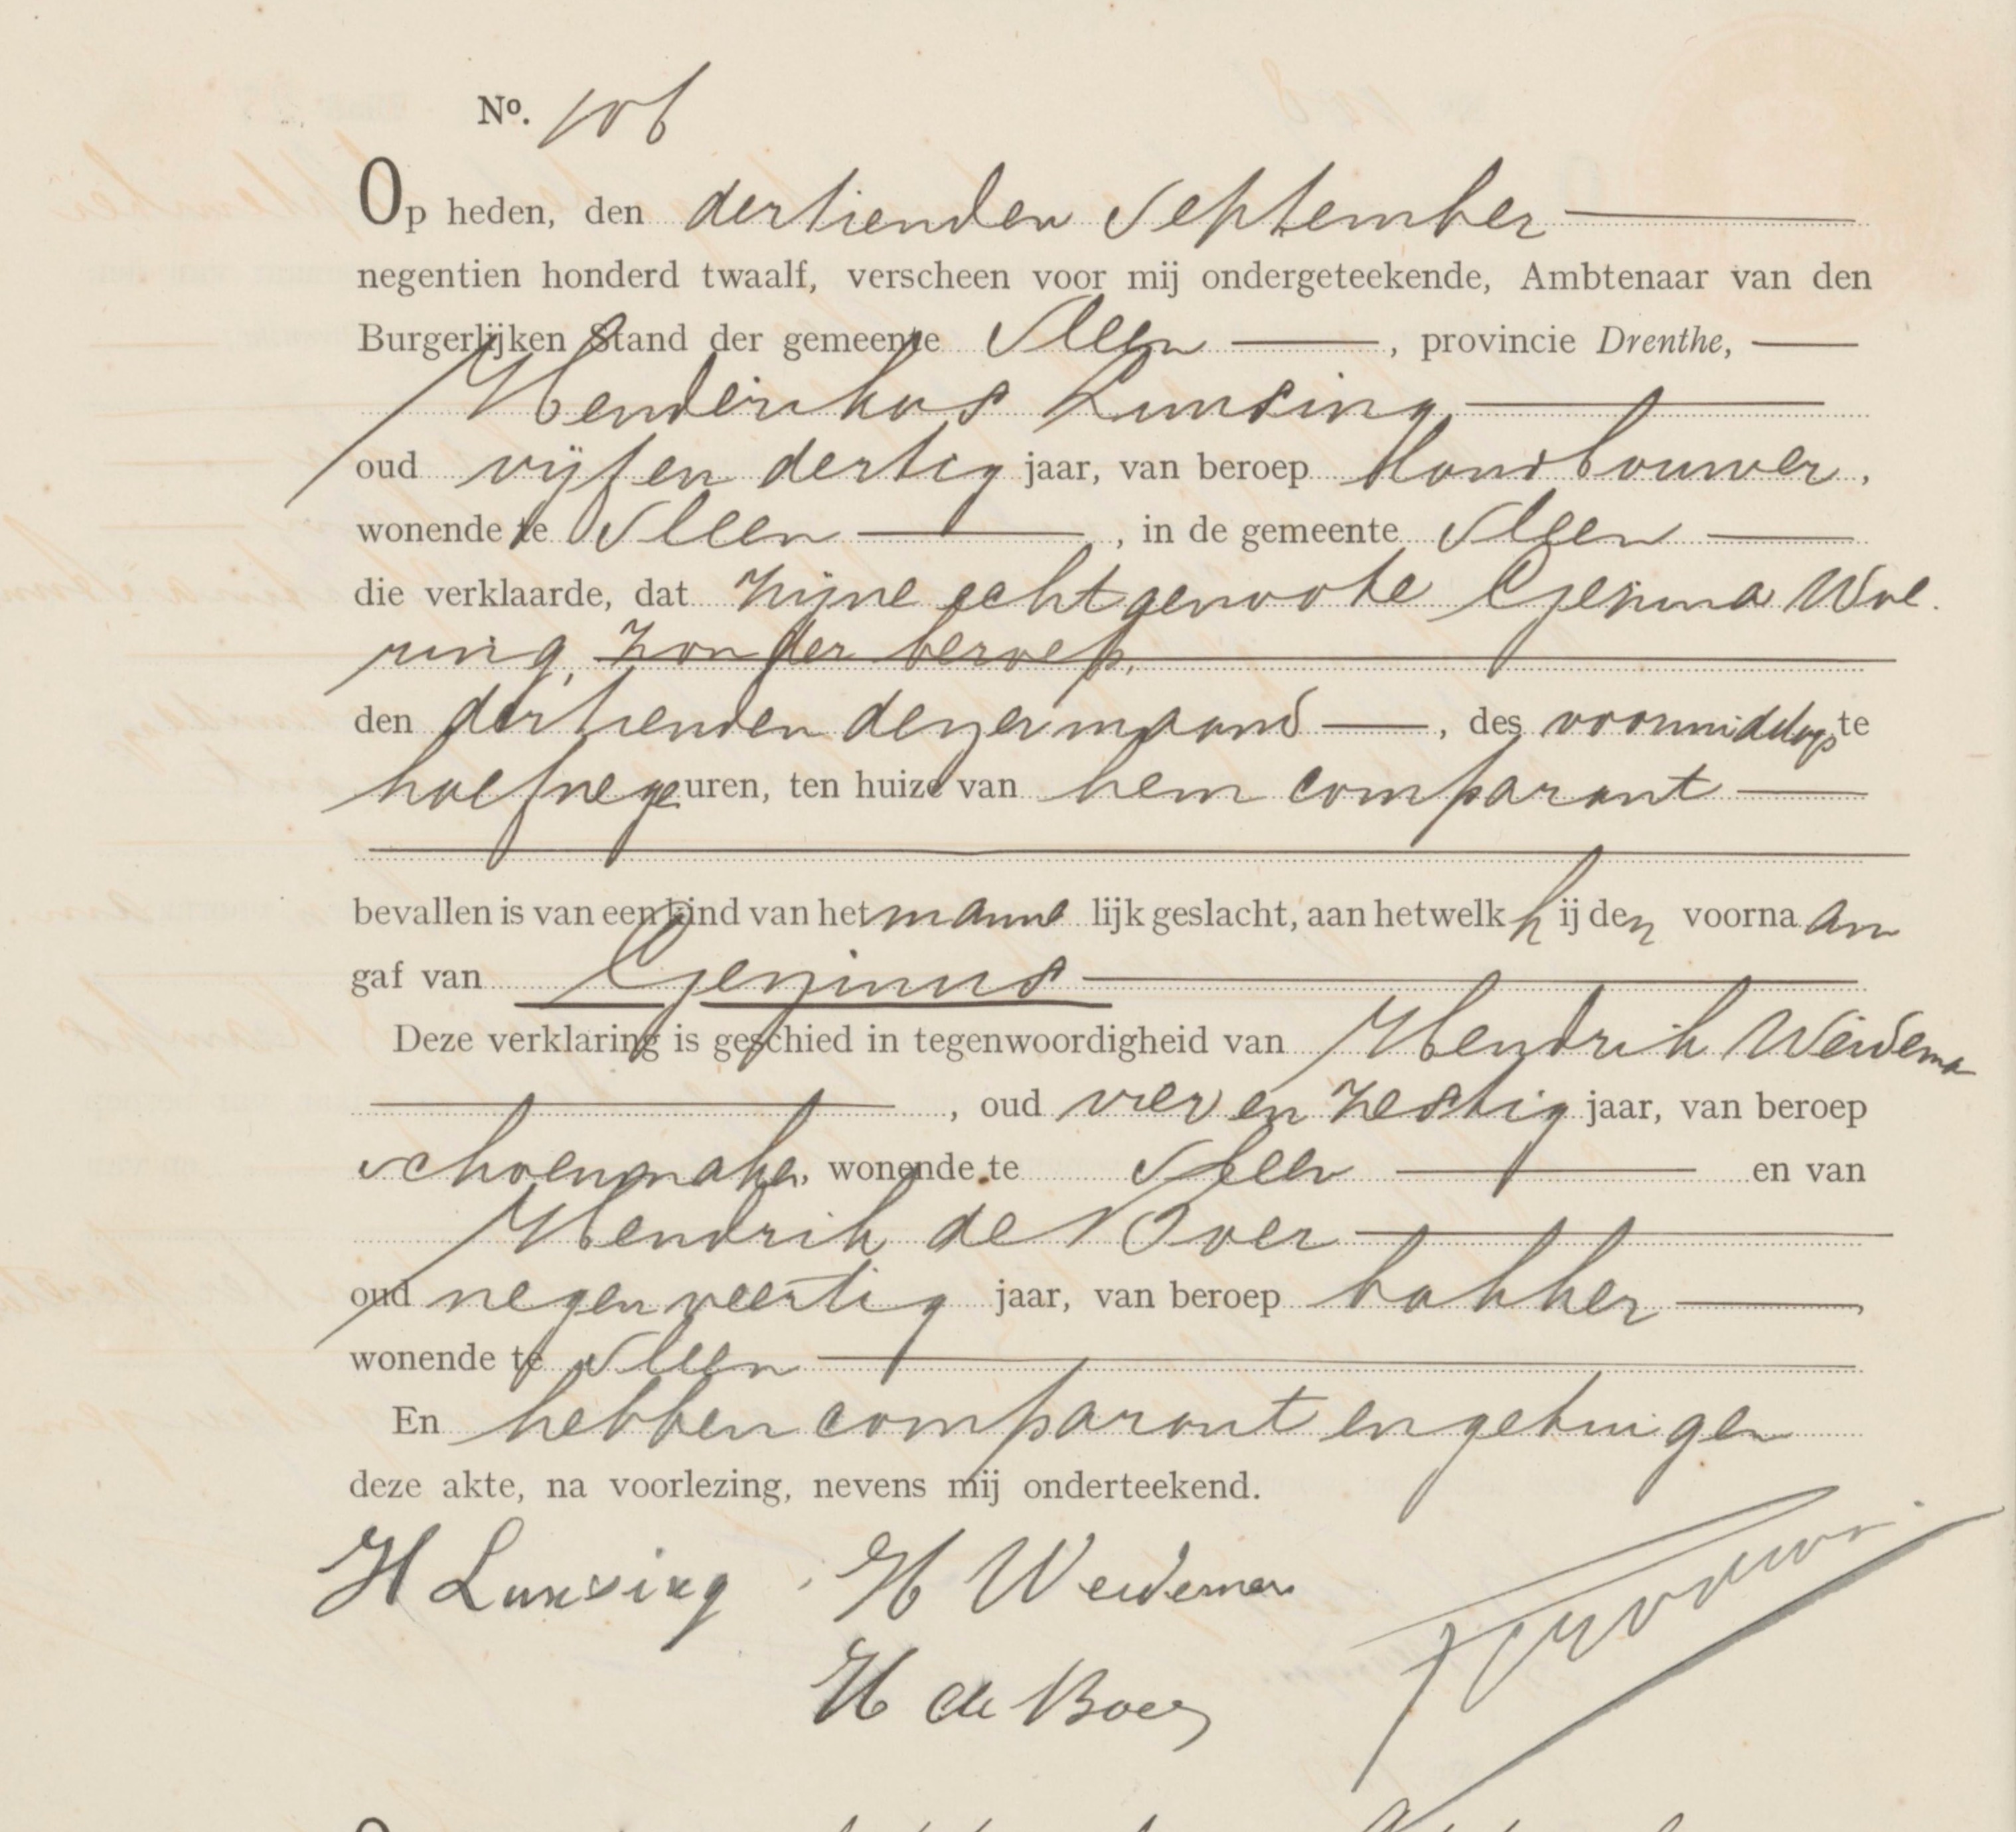 Nº. 106
Op heden, den dertienden September
negentien honderd twaalf, verscheen voor mij ondergeteekende, Ambtenaar van den
Burgerlijken Stand der gemeente Sleen, provincie Drenthe,
Henderikus Lunsing
oud vijf en dertig jaar, van beroep landbouwer,
wonende te Sleen, in de gemeente Sleen
die verklaarde, dat zijne echtgenoote Gezina Woe
ring, zonder beroep,
den dertienden dezer maand, des voormiddags te
half negen uren, ten huize van hem comparant
bevallen is van een kind van het manne lijk geslacht, aan hetwelk hij den voornaam
gaf van Gezinus
Deze verklaring is geschied in tegenwoordigheid van Hendrik Weidema
, oud vier en zestig jaar, van beroep
schoenmaker, wonende te Sleen en van
Hendrik de Boer
oud negenveertig jaar, van beroep bakker,
wonende te Sleen
En hebben comparant en getuigen
deze akte, na voorlezing, nevens mij onderteekend.
H Lunsing H Weidema
H de Boer